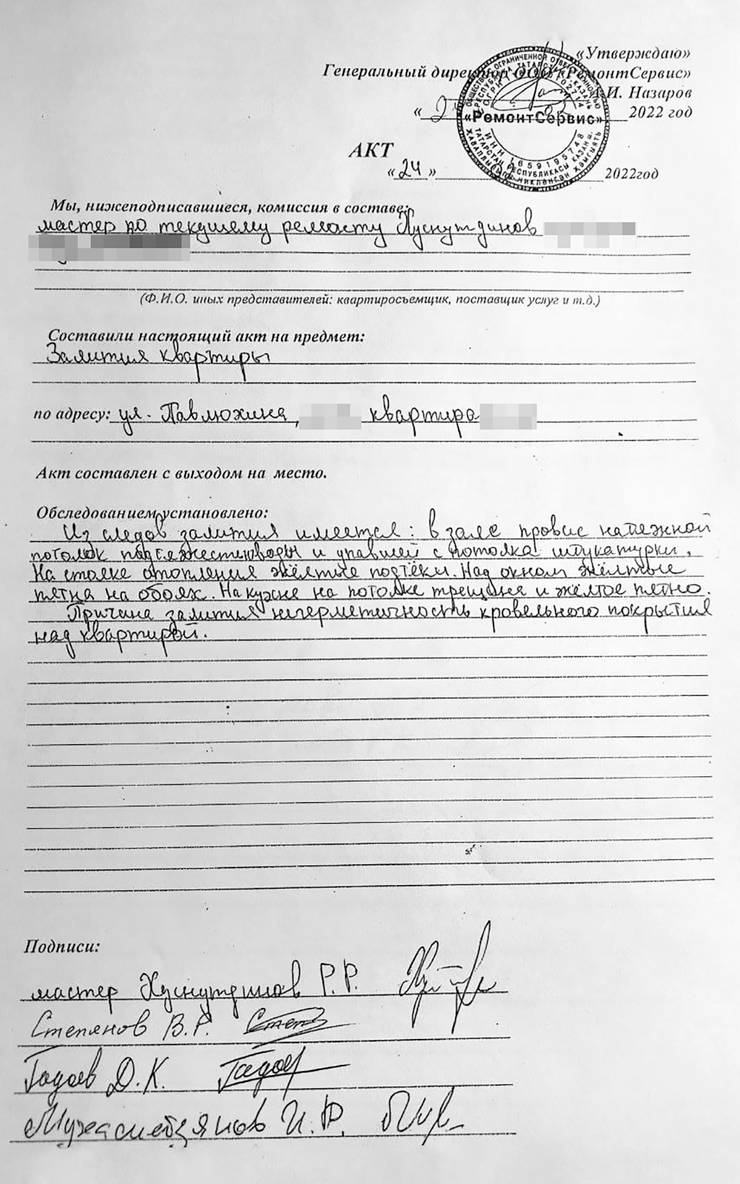 «Утверждаю»
Генеральный директор ООО «РемонтСервис»
А.И. Назаров
« » 2022 год
«РемонтСервис»
АКТ
« 24 » 2022год
Мы, нижеподписавшиеся, комиссия в составе:
мастер по текущему ремонту Хуснутдинов
(Ф.И.О. иных представителей: квартиросъемщик, поставщик услуг и т.д.)
Составили настоящий акт на предмет:
Залития квартиры
по адресу: ул. Павлюхина, квартира
Акт составлен с выходом на место.
Обследованием установлено:
Из следов залития имеется: в зале провис натяжной
потолок под тяжестью воды и упавшей с потолка штукатурки.
На стояке отопления жёлтые подтёки. Над окном жёлтые
пятна на обоях. На кухне на потолке трещина и жёлтое пятно.
Причина залития негерметичность кровельного покрытия
над квартирой.
Подписи:
мастер Хуснутдинов Р.Р.
Степанов В.Р.
Гадаев Д.К.
Мухаметзянов И.Ф.